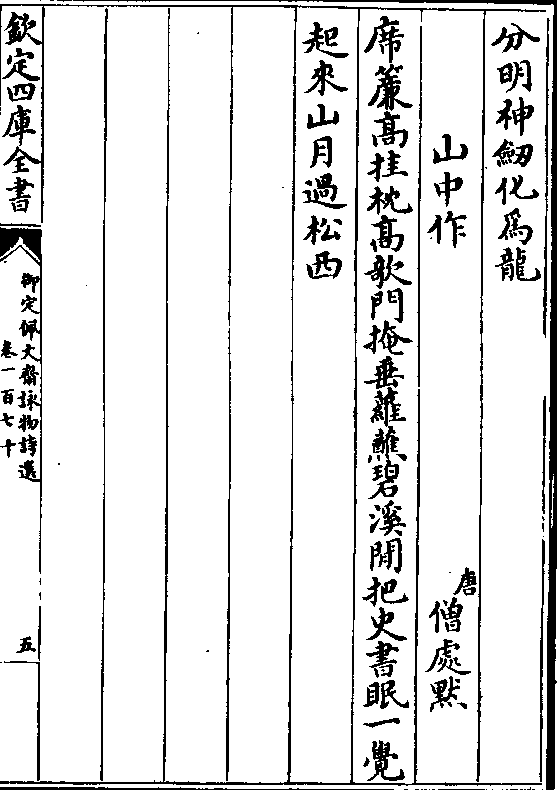 分明神劒化爲龍
山中作　唐僧處默
席簾高挂枕高欹門掩垂蘿蘸碧溪閒把史書眠一覺
起來山月過松西
欽定四庫全書
御定佩文齋詠物詩選
卷一百七十
五